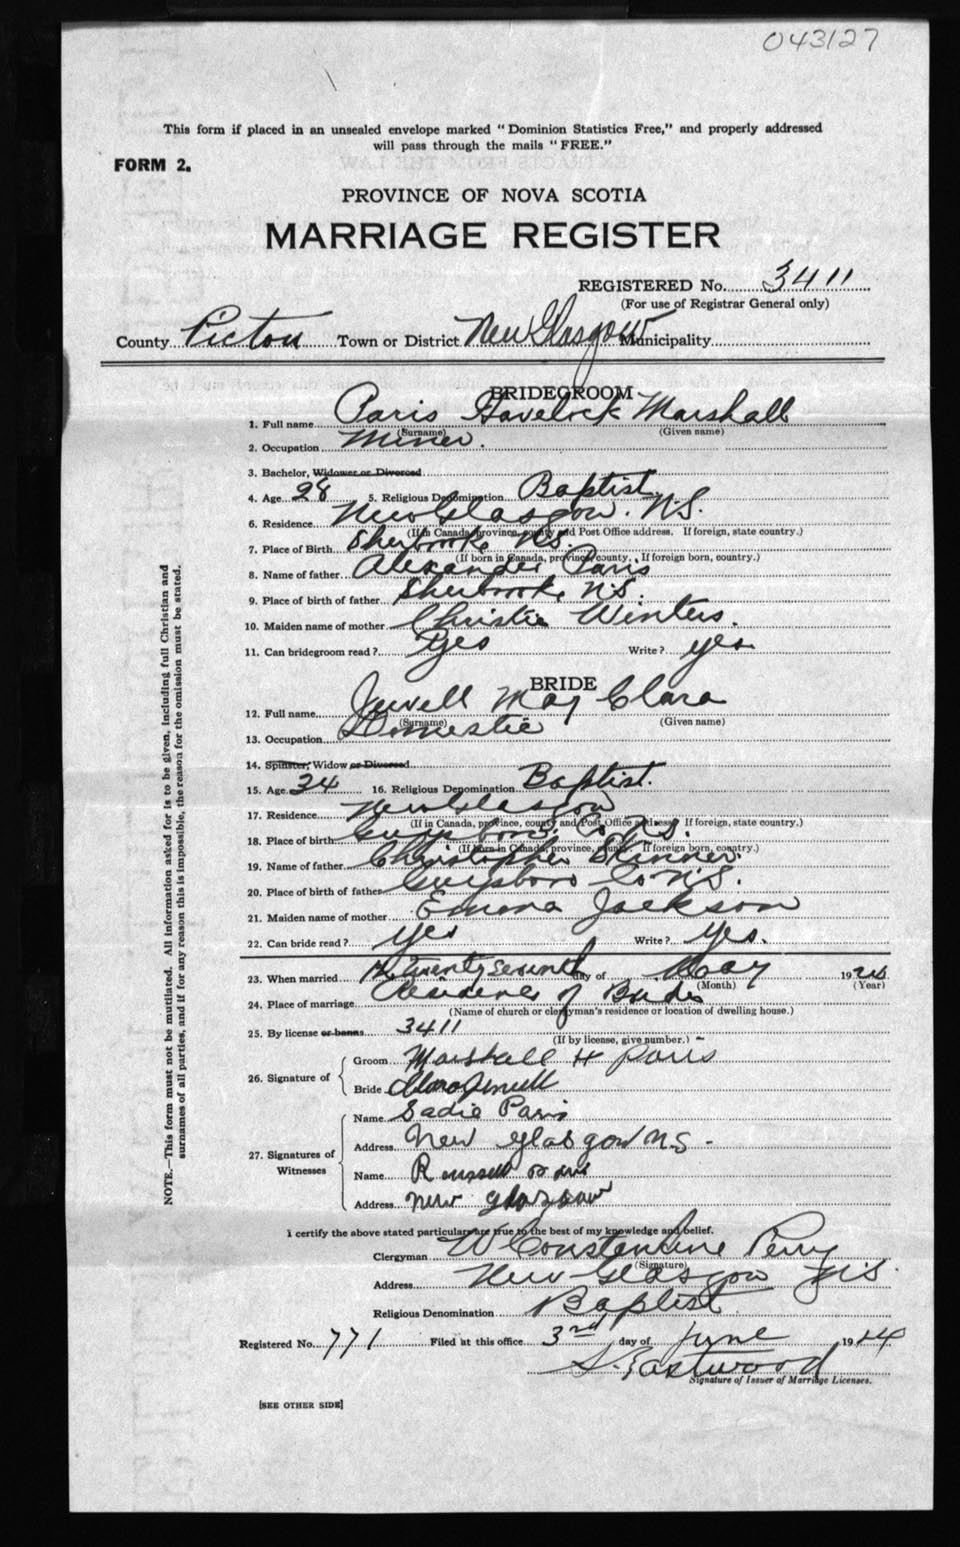 043127
This form if placed in an unsealed envelope marked "Dominion Statistics Free," and properly addressed
will pass through the mails "FREE."
FORM 2.
PROVINCE OF NOVA SCOTIA
MARRIAGE REGISTER
REGISTERED No. 3411
(For use of Registrar General only)
County Pictou Town or District New Glasgow Municipality
BRIDEGROOM
1. Full name Paris Havelock Marshall
(Surname) (Given name)
2. Occupation Miner.
3. Bachelor, Widower or Divorced
4. Age 28 5. Religious Denomination Baptist
6. Residence New Glasgow. N.S.
(If in Canada, province, county and Post Office address. If foreign, state country.)
7. Place of Birth Sherbrooke N.S.
(If born in Canada, province, county. If foreign born, country.)
8. Name of father Alexander Paris
9. Place of birth of father Sherbrooke N.S.
10. Maiden name of mother Christie Winters.
11. Can bridegroom read? Yes Write? yes
BRIDE
12. Full name Jewell May Clara
(Surname) (Given name)
13. Occupation Domestic
14. Spinster, Widow or Divorced
15. Age 34 16. Religious Denomination Baptist.
17. Residence New Glasgow
(If in Canada, province, county and Post Office address. If foreign, state country.)
18. Place of birth Guysboro Co N.S.
(If born in Canada, province, county. If foreign born, country.)
19. Name of father Christopher Skinner.
20. Place of birth of father Guysboro Co N.S.
21. Maiden name of mother Emma Jackson
22. Can bride read? yes Write? Yes.
23. When married twenty seventh day of May 1924
(Month) (Year)
24. Place of marriage Residence of Bride
(Name of church or clergyman's residence or location of dwelling house.)
25. By license or banns 3411
(If by license, give number.)
26. Signature of
Groom Marshall H Paris
Bride Clara Jewell
27. Signatures of Witnesses
Name Sadie Paris
Address New Glasgow N.S.
Name Russell Paris
Address New Glasgow
I certify the above stated particulars are true to the best of my knowledge and belief.
Clergyman W Constantine Perry
(Signature)
Address New Glasgow N.S.
Religious Denomination Baptist
Registered No. 771 Filed at this office 3rd day of June 1924
S. Eastwood
Signature of Issuer of Marriage Licenses.
[SEE OTHER SIDE]
NOTE.—This form must not be mutilated. All information asked for is to be given, including full Christian and
surnames of all parties, and if for any reason this is impossible, the reason for the omission must be stated.